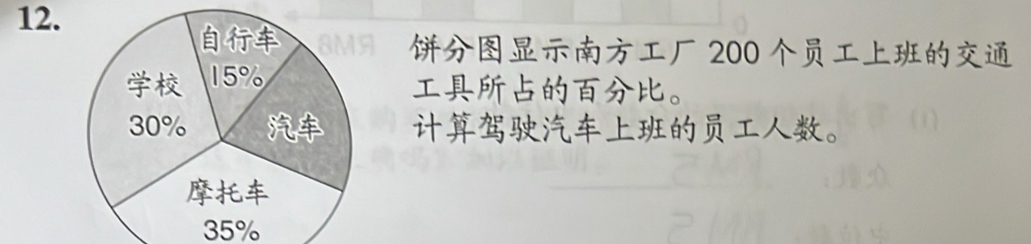 12.
自行车
15%
学校
30%
汽车
摩托车
35%
饼分图显示南方工厂 200 个员工上班的交通
工具所占的百分比。
计算驾驶汽车上班的员工人数。